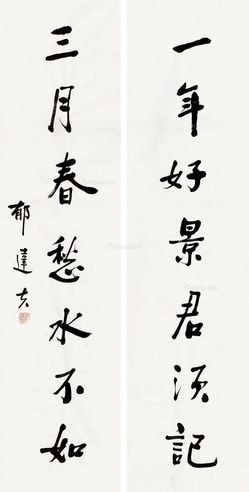 一年好景君須記
三月春愁水不如
郁達夫